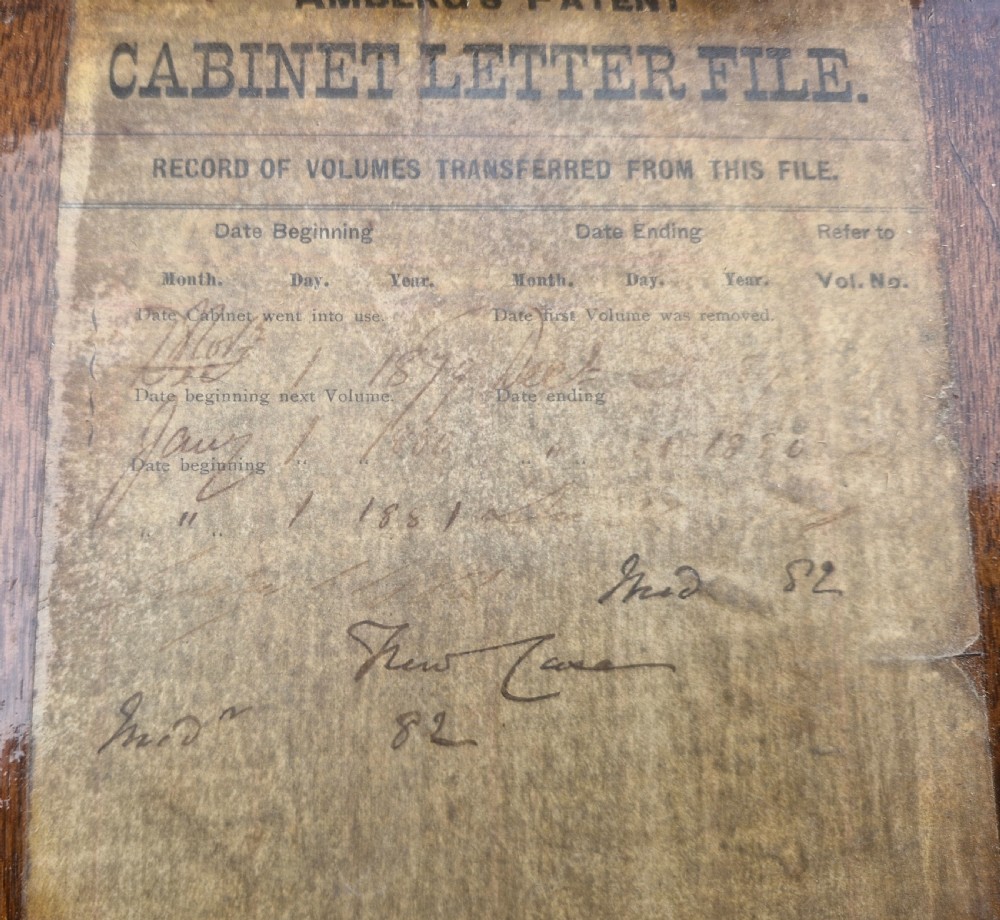 AMBERG'S PATENT
CABINET LETTER FILE.
RECORD OF VOLUMES TRANSFERRED FROM THIS FILE.
Date Beginning Date Ending Refer to
Month. Day. Year. Month. Day. Year. Vol. No.
Date Cabinet went into use. Date first Volume was removed.
1 187
Date beginning next Volume. Date ending
Jany 1 1880 " 1880
Date beginning " "
" 1 1881
82
New Case
82